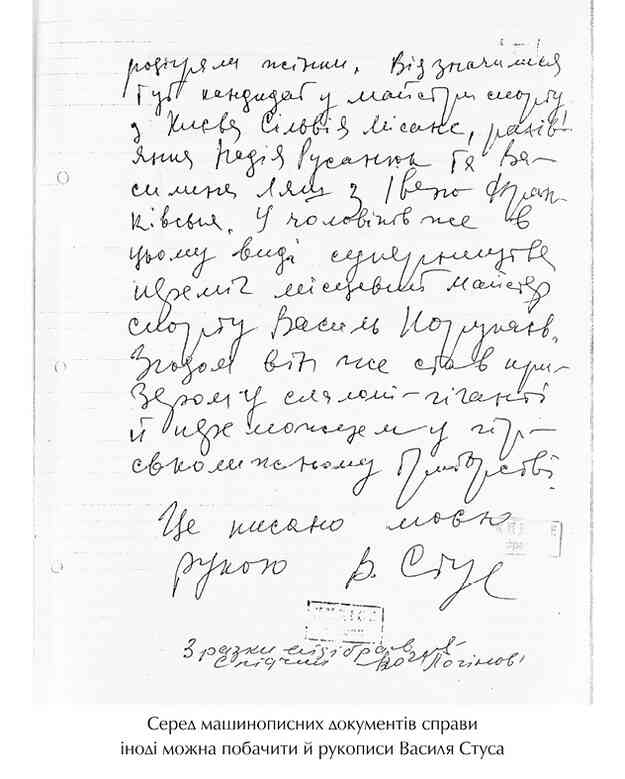 розіграли жінки. Відзначилися
тут кандидат у майстри спорту
з Києва Сільвія Лісанс, рахів-
янка Надія Русанюк та Ва-
силина Лящ з Івано-Фран-
ківська. У чоловіків же в
цьому виді суперництва
переміг місцевий майстер
спорту Василь
Згодом він же став при-
зером у слаломі-гіганті
й переможцем у гір-
ськолижному двоборстві.
Це писано моєю
рукою В. Стус
Зразки відібрав
Слідчий Логінов
Серед машинописних документів справи
іноді можна побачити й рукописи Василя Стуса